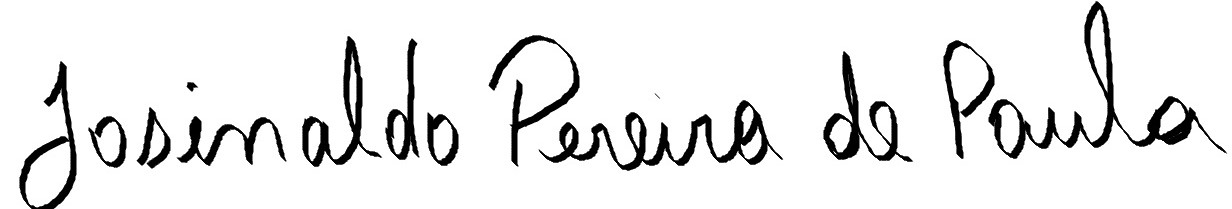 Josinaldo Pereira de Paula